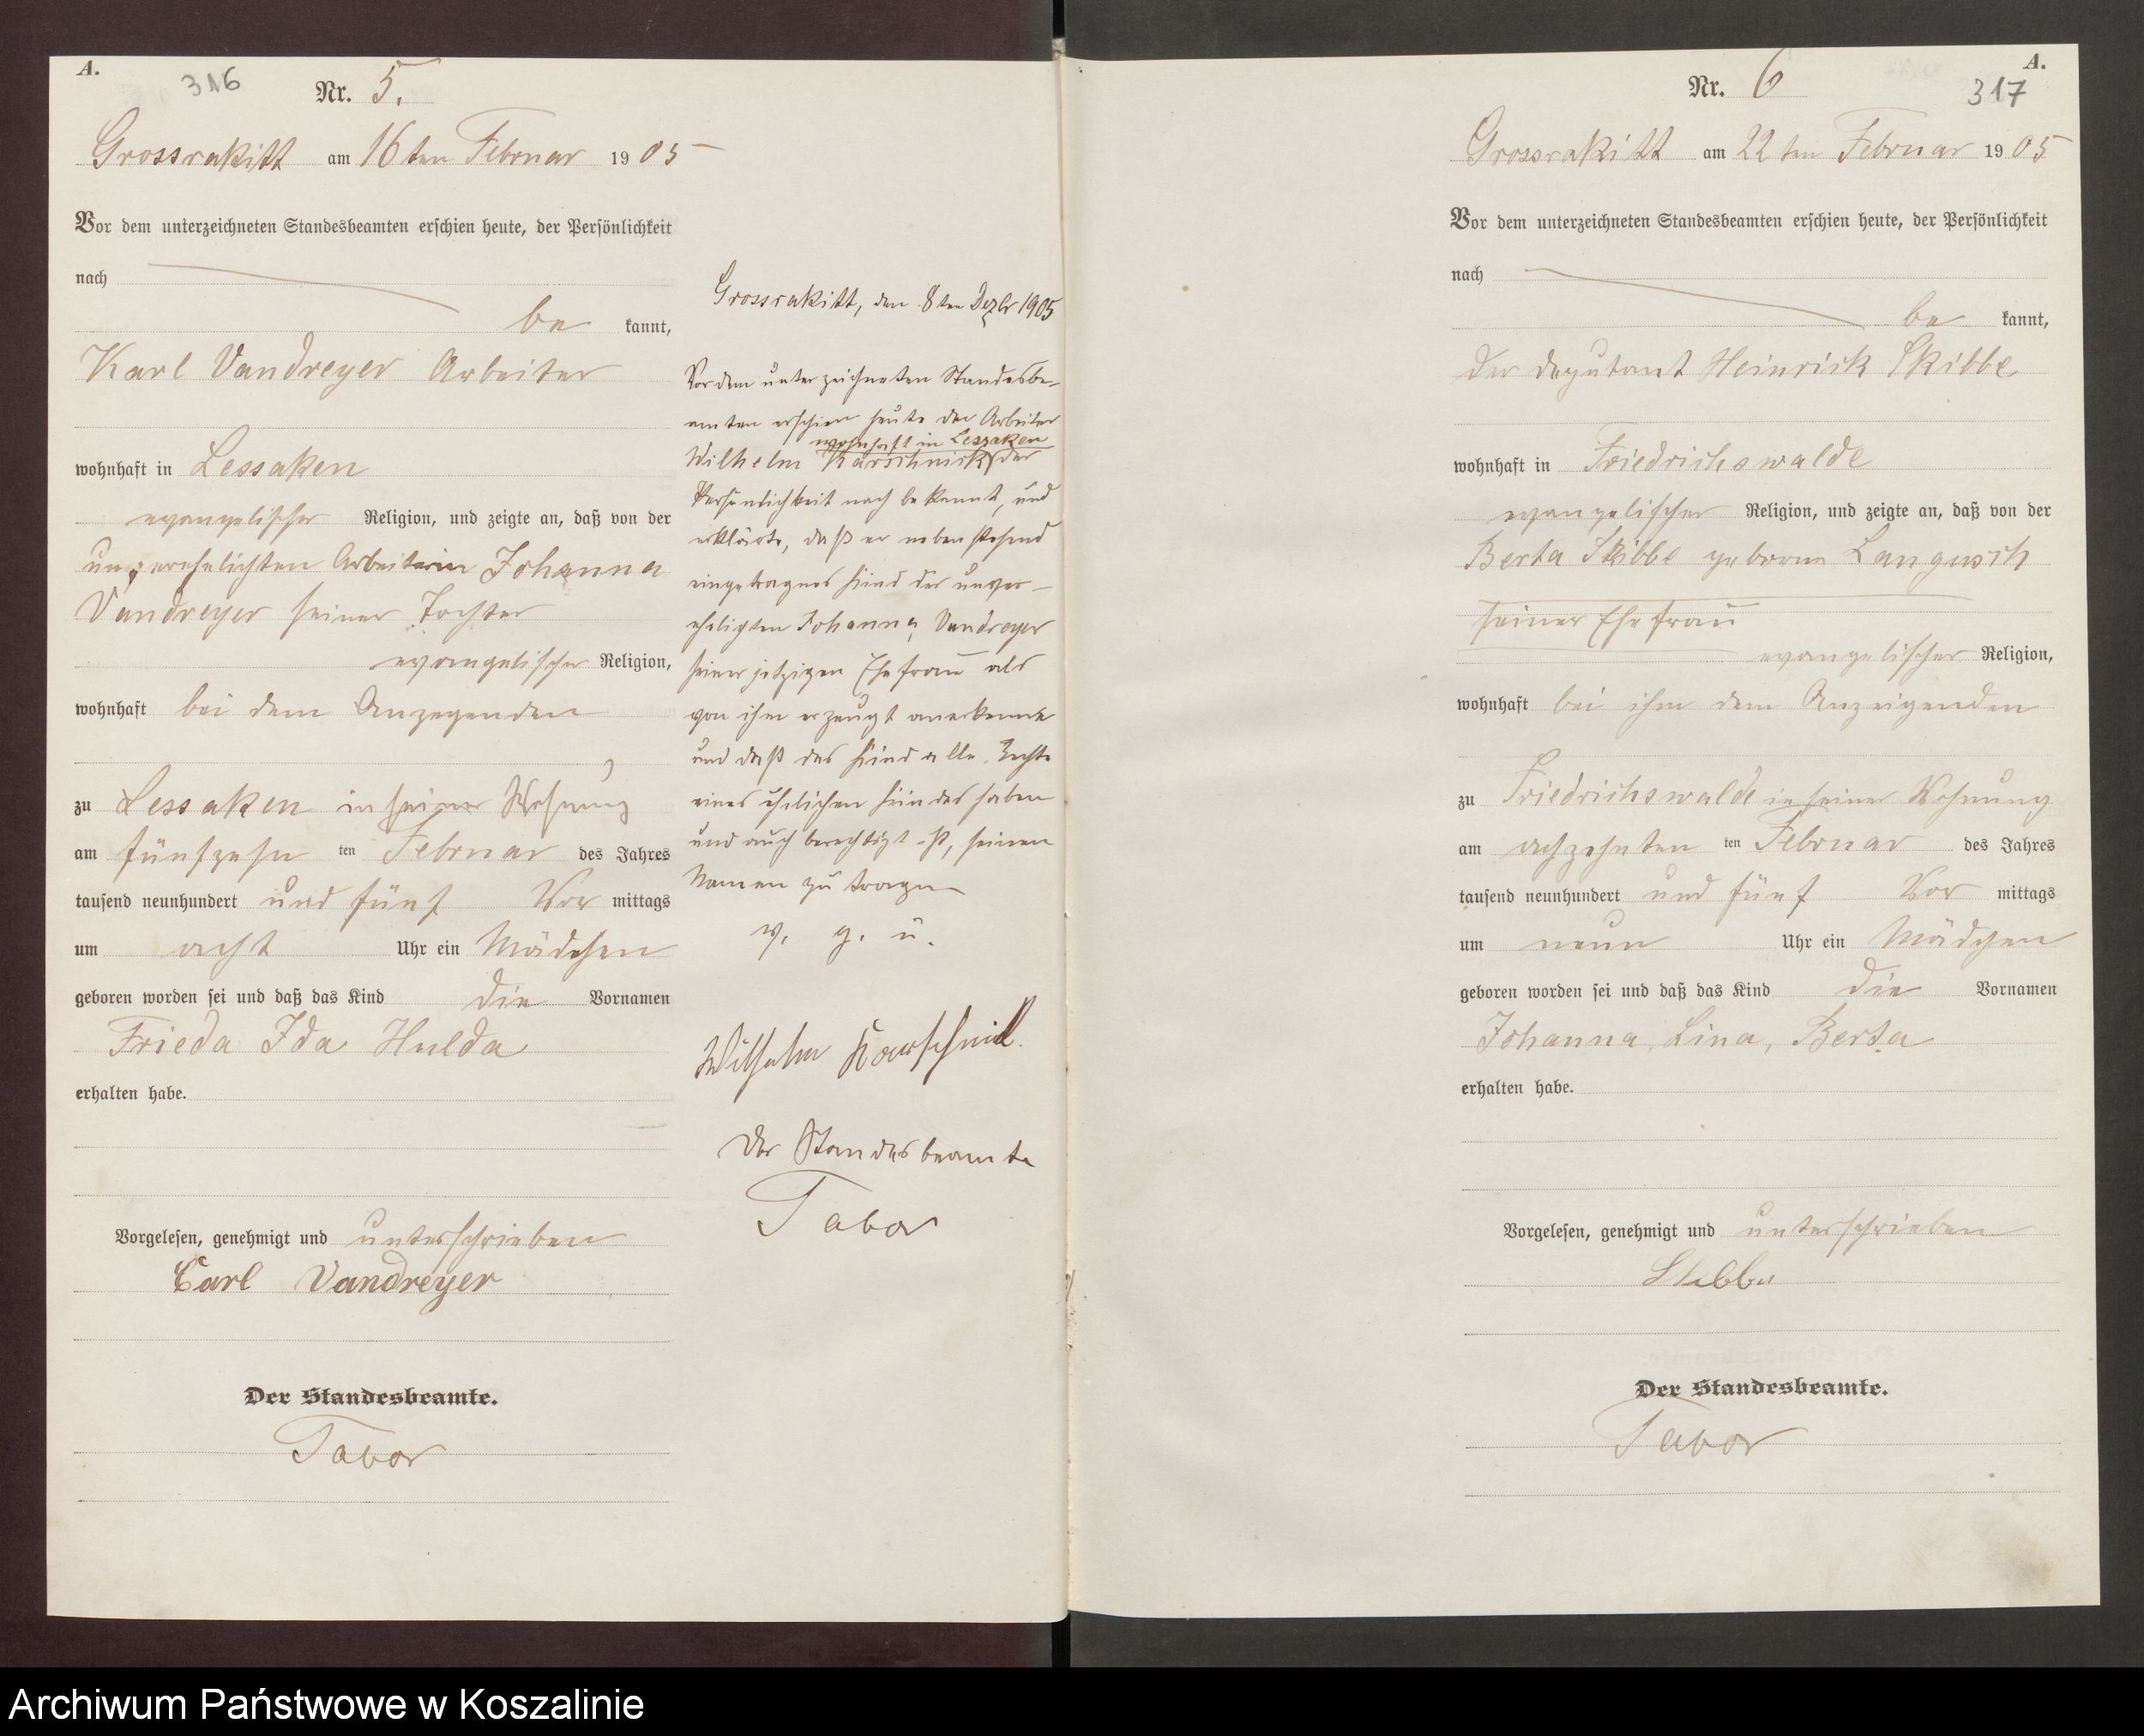 A.
316
Nr. 5.
Grossrakitt am 16ten Februar 1905
Vor dem unterzeichneten Standesbeamten erschien heute, der Persönlichkeit
nach
be kannt,
Karl Vandreyer Arbeiter
wohnhaft in Lessaken
evangelischer Religion, und zeigte an, daß von der
unverehelichten Arbeiterin Johanna
Vandreyer seiner Tochter
evangelischer Religion,
wohnhaft bei dem Anzegenden
zu Lessaken in seiner Wohnung
am fünfzehn ten Februar des Jahres
tausend neunhundert und fünf Vor mittags
um acht Uhr ein Mädchen
geboren worden sei und daß das Kind die Vornamen
Frieda Ida Hulda
erhalten habe.
Vorgelesen, genehmigt und unterschrieben
Carl Vandreyer
Der Standesbeamte.
Tabor
Grossrakitt, den 8ten Dezbr 1905
Vor dem unterzeichneten Standesbe-
amten erschien heute der Arbeiter
wohnhaft in Lessaken
Wilhelm Karschnick der
Persönlichkeit nach bekannt, und
erklärte, daß er nebenstehend
eingetragenes Kind der unver-
ehligten Johanna Vandreyer
seiner jetzigen Ehefrau als
von ihm erzeugt anerkenne
und daß das Kind alle Rechte
eines ehelichen Kindes haben
und auch berechtigt ist, seinen
Namen zu tragen
v. g. u.
Wilhelm Karschnick.
Der Standesbeamte
Tabor
A.
317
Nr. 6
Grossrakitt am 22ten Februar 1905
Vor dem unterzeichneten Standesbeamten erschien heute, der Persönlichkeit
nach
be kannt,
der Deputant Heinrich Skibbe
wohnhaft in Friedrichswalde
evangelischer Religion, und zeigte an, daß von der
Berta Skibbe geborne Langusch
seiner Ehefrau
evangelischer Religion,
wohnhaft bei ihm dem Anzeigenden
zu Friedrichswalde in seiner Wohnung
am achzehnten ten Februar des Jahres
tausend neunhundert und fünf Vor mittags
um neun Uhr ein Mädchen
geboren worden sei und daß das Kind die Vornamen
Johanna, Lina, Berta
erhalten habe.
Vorgelesen, genehmigt und unterschrieben
Skibbe
Der Standesbeamte.
Tabor
Archiwum Państwowe w Koszalinie